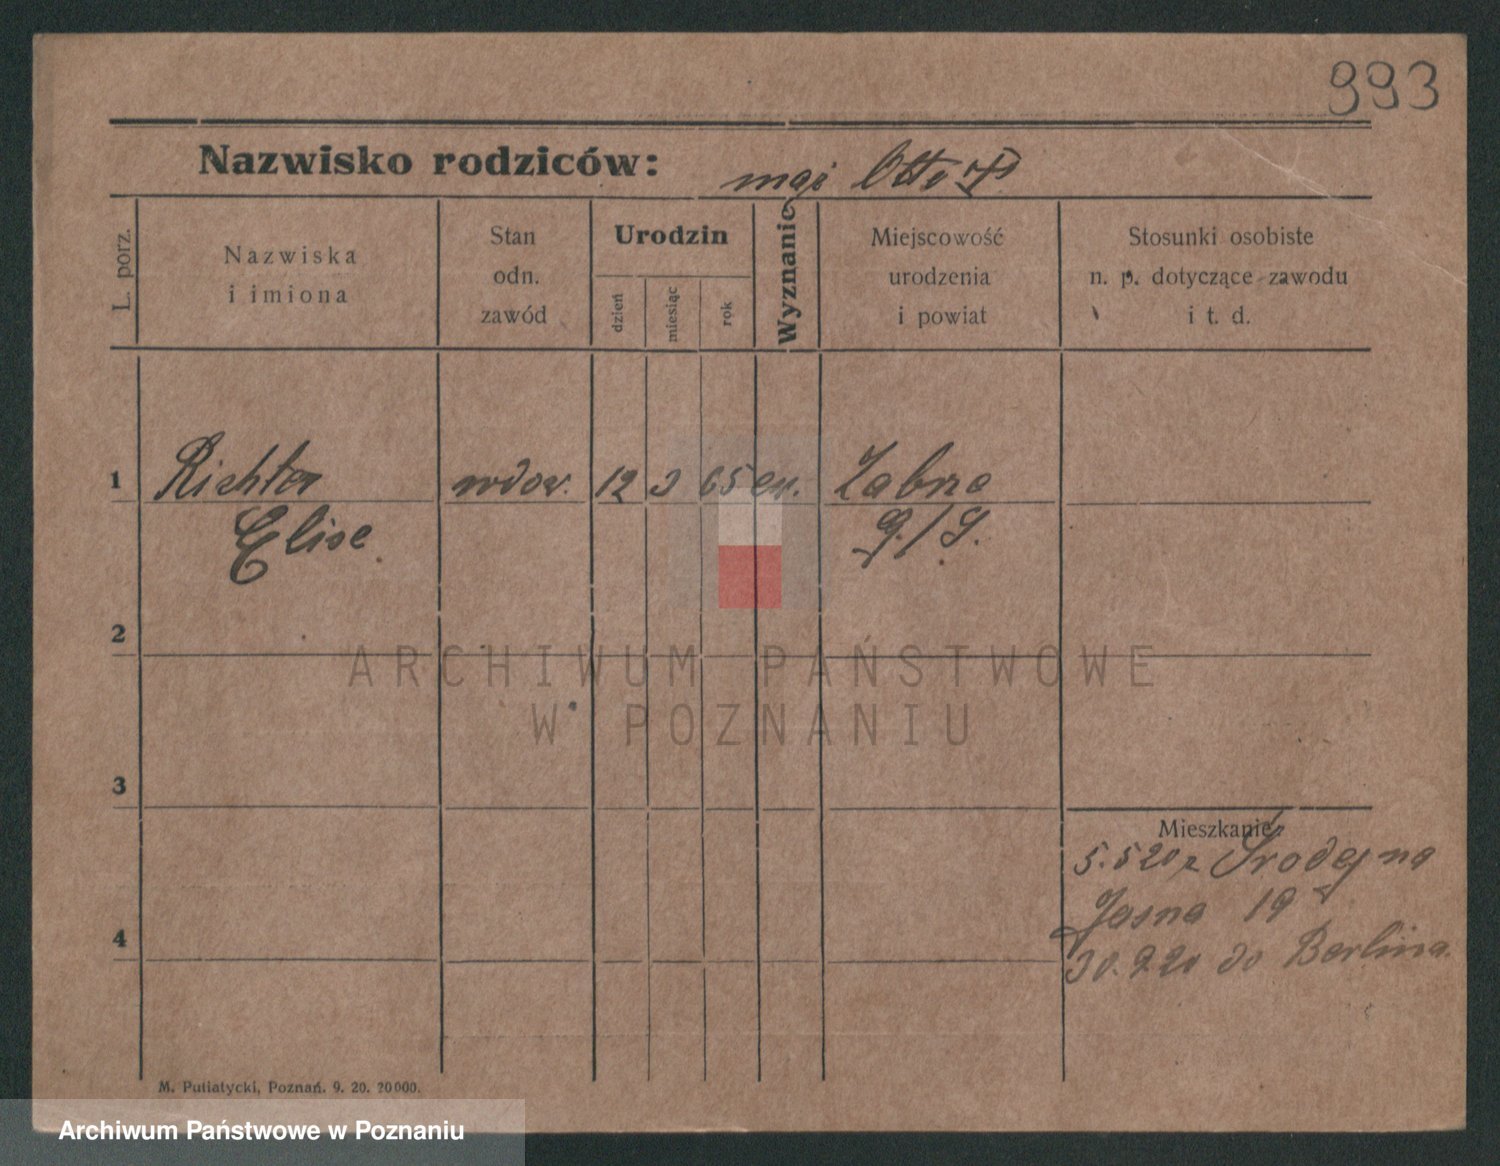 993
Nazwisko rodziców: mąż Otto
L. porz.
Nazwiska
i imiona
Stan
odn.
zawód
Urodzin
dzień
miesiąc
rok
Wyznanie
Miejscowość
urodzenia
i powiat
Stosunki osobiste
n. p. dotyczące zawodu
i t. d.
1 Richter wdow. 12 3 65 ew. Zabrze
Elise G./S.
2
3
4
Mieszkanie:
5.5 20 z Środy na
Jasna 19
30.9.20 do Berlina.
M. Putiatycki, Poznań. 9. 20. 20000.
ARCHIWUM PAŃSTWOWE
W POZNANIU
Archiwum Państwowe w Poznaniu